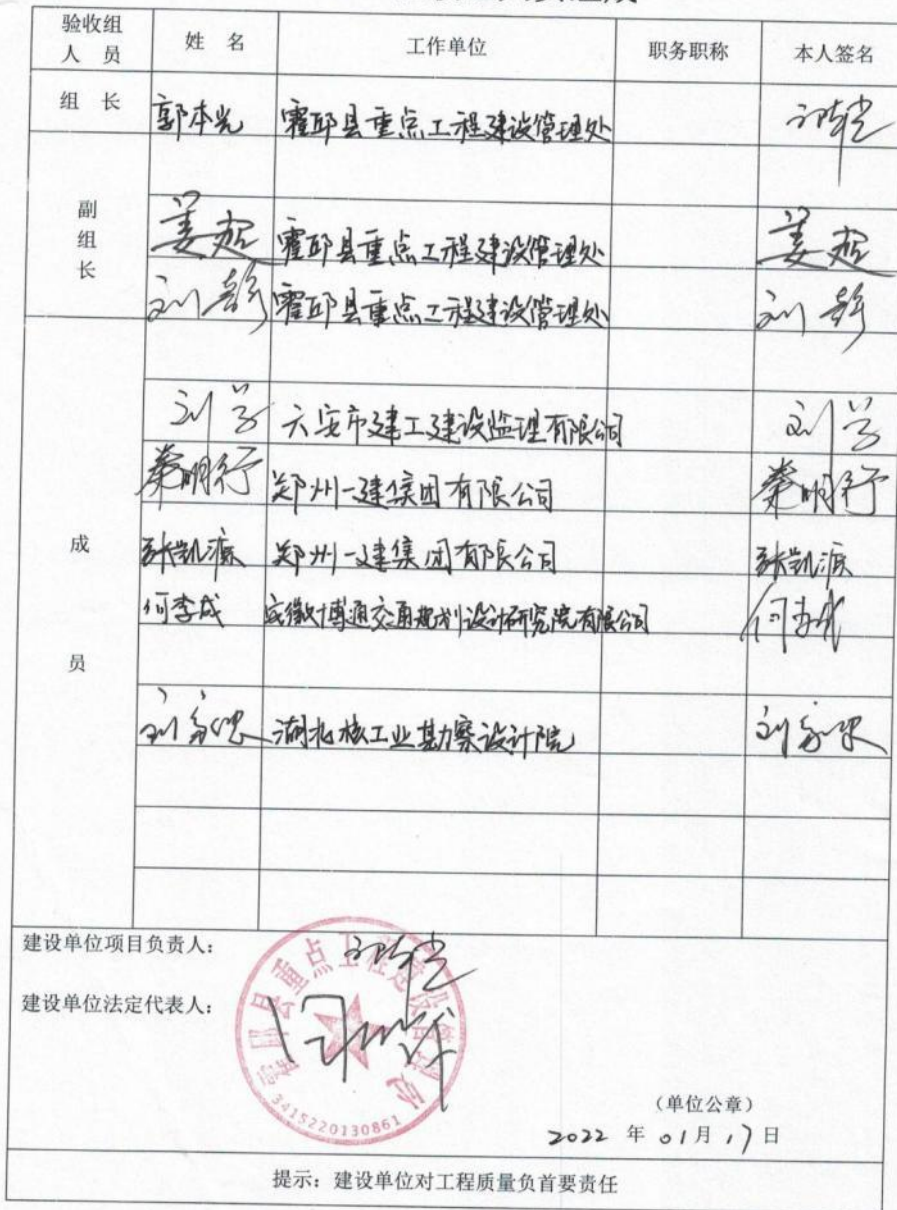 验收组人员 姓 名 工作单位 职务职称 本人签名
组 长 郭本光 霍邱县重点工程建设管理处
副组长 姜超 霍邱县重点工程建设管理处 姜超
刘彭 霍邱县重点工程建设管理处 刘彭
成员 刘学 六安市建工建设监理有限公司 刘学
秦明行 郑州一建集团有限公司 秦明行
张凯源 郑州一建集团有限公司 张凯源
何李成 安徽博通交通规划设计研究院有限公司 何李成
湖北核工业勘察设计院
建设单位项目负责人:
建设单位法定代表人:
霍邱县重点工程建设管理处
3415220130861
(单位公章)
2022 年 01 月 17 日
提示:建设单位对工程质量负首要责任